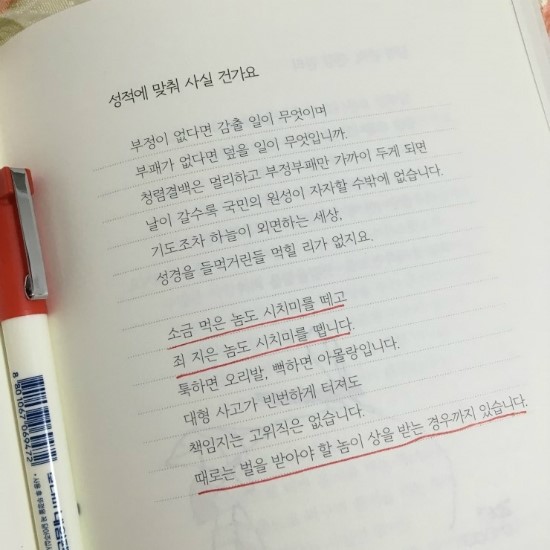 성적에 맞춰 사실 건가요
부정이 없다면 감출 일이 무엇이며
부패가 없다면 덮을 일이 무엇입니까.
청렴결백은 멀리하고 부정부패만 가까이 두게 되면
날이 갈수록 국민의 원성이 자자할 수밖에 없습니다.
기도조차 하늘이 외면하는 세상,
성경을 들먹거린들 먹힐 리가 없지요.
소금 먹은 놈도 시치미를 떼고
죄 지은 놈도 시치미를 뗍니다.
툭하면 오리발, 뻑하면 아몰랑입니다.
대형 사고가 빈번하게 터져도
책임지는 고위직은 없습니다.
때로는 벌을 받아야 할 놈이 상을 받는 경우까지 있습니다.
8 801067 069472